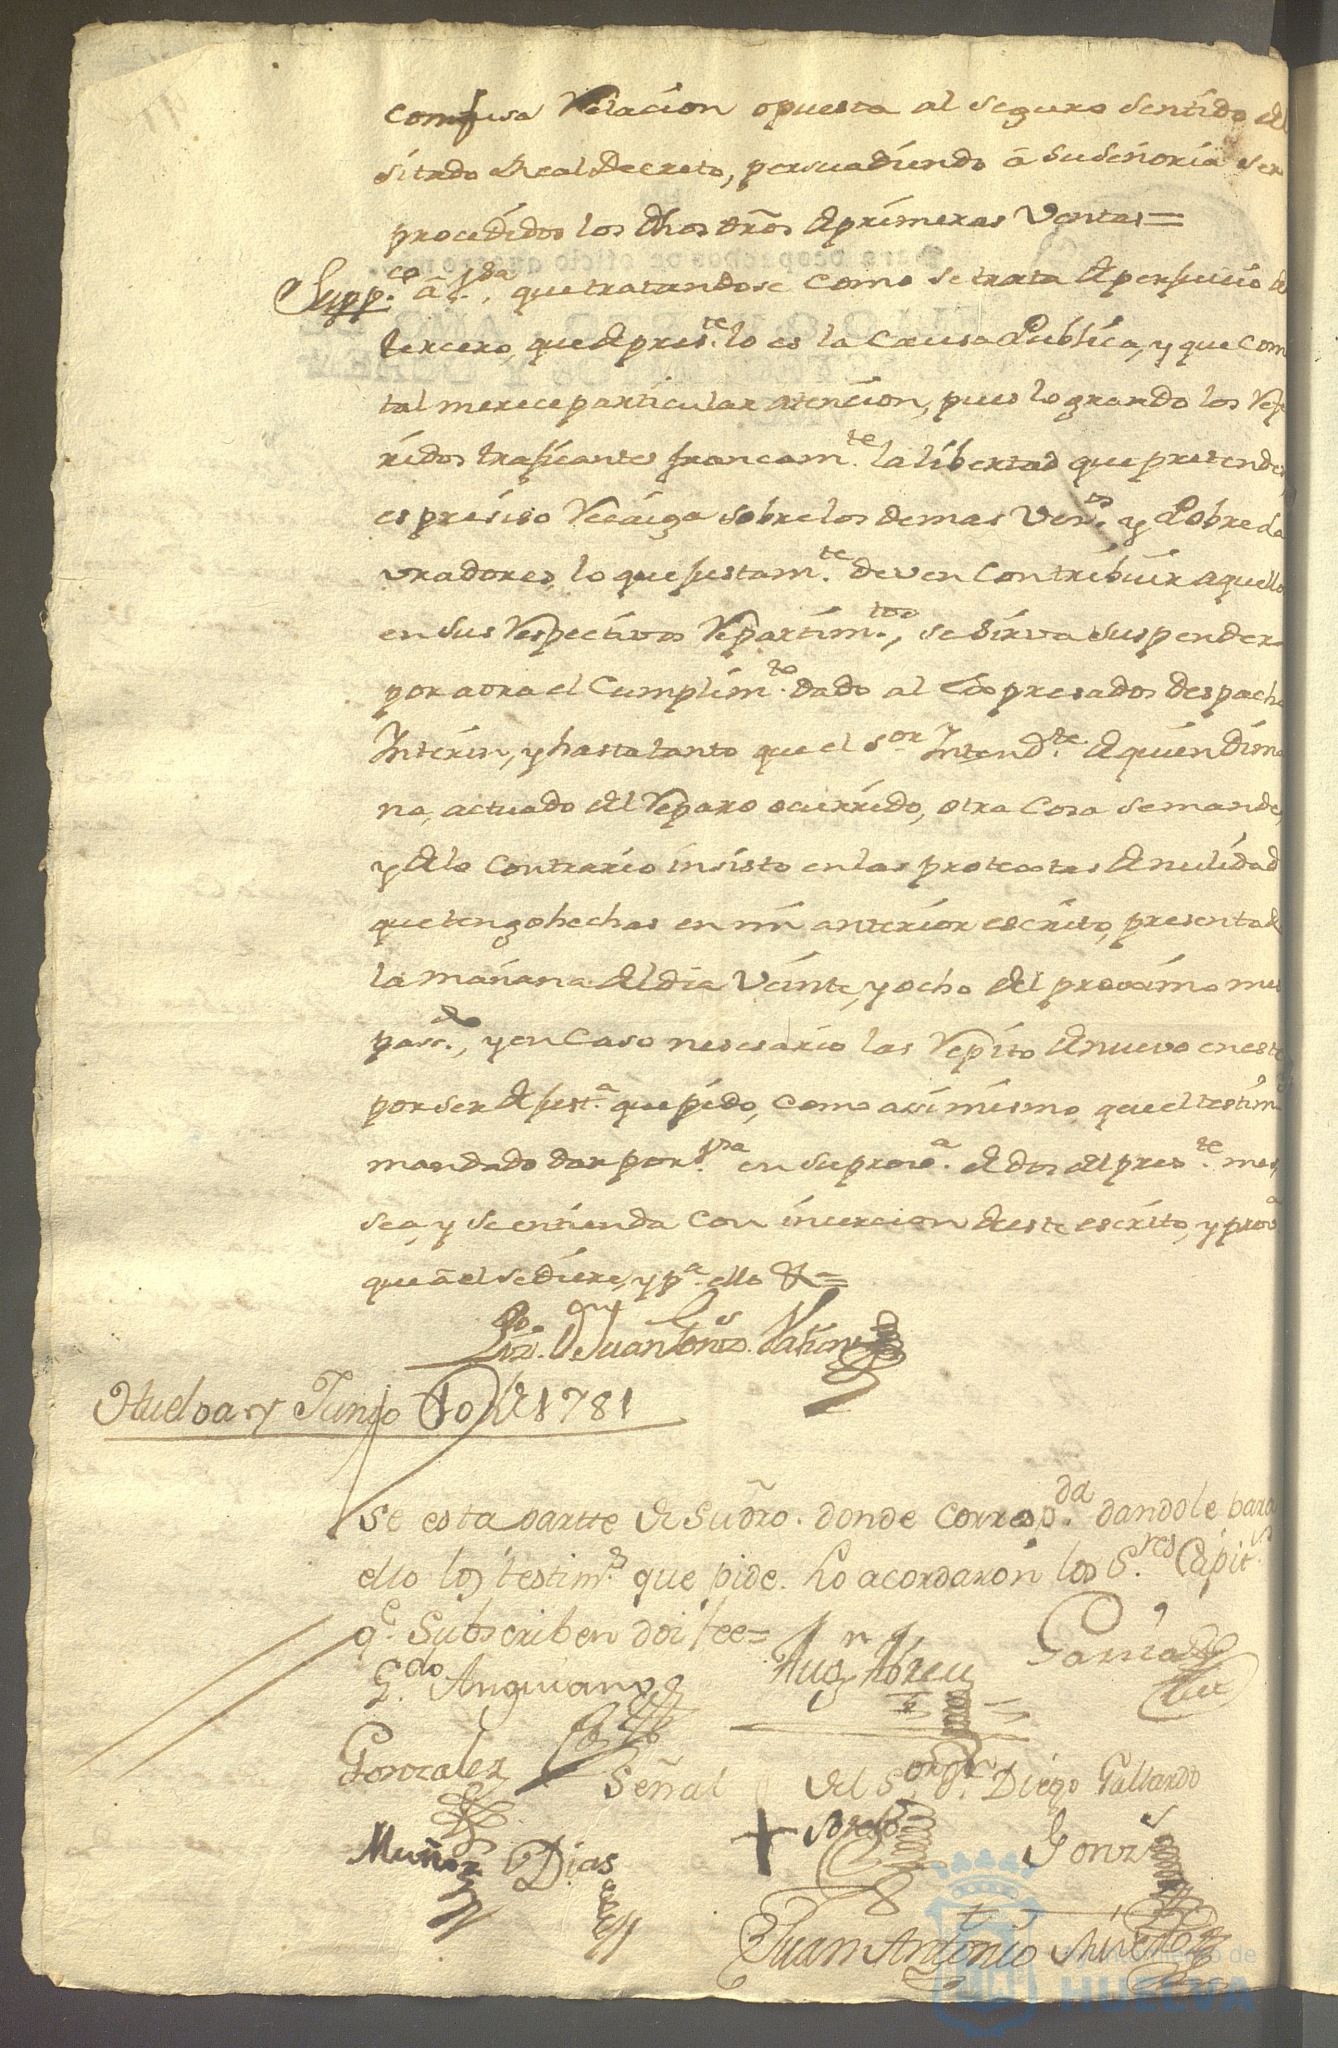 confusa Relacion opuesta al seguro sentido del
sitado Real Decreto, persuadiendo â su señoria ser
procedidos los dhos dros de primeras Ventas=
Supp.co â V.Sa, que tratandose como se trata de perjuicio de
tercero, que de pres.te lo es la Causa Publica, y que como
tal merece particular atencion, pues logrando los Refe
ridos traficantes francam.te la libertad que pretenden,
es presiso Recaiga sobre los demas Vec.os y Pobres la
vradores, lo que justam.te deven Contribuir aquellos
en sus Respectivos Repartim.tos, se sirva suspender
por aora el Cumplim.to dado al Espresados despacho
Interin, y hasta tanto que el S.or Intend.te de quien dima
na, actuado del Reparo ocurrido, otra Cosa se mande,
y de lo Contrario insisto en las protestas de nulidad
que tengo hechas en mi anterior escrito, presentado
la mañana del dia Veinte, y ocho del proximo mes
pas.do, y en Caso nesesario las Repito de nuevo en este
por ser de just.a que pido, como asimismo, que el testim
mandado dar por V.Sa en su prov.a de dos del pres.te mes,
sea, y se entienda con incercion de este escrito, y prov.a
que â el se diere, y p.a ello &=
Lizdo. Dn Juan Gonz.
Huelva y Junio 10 de 1781
se esta partte de su dro. donde corresp.da dandole para
ello los testim.s que pide. Lo acordaron los S.res Capit.s
q.e Subscriben doi fee=
G.do Anguiano
Aug.n Abreu
Garcia
Gonzalez
Señal del S.or Dn. Diego Gallardo
Muñoz
Dias
+
Sotelo
Gonz.s
Juan Antonio
Ayuntamiento de
HUELVA